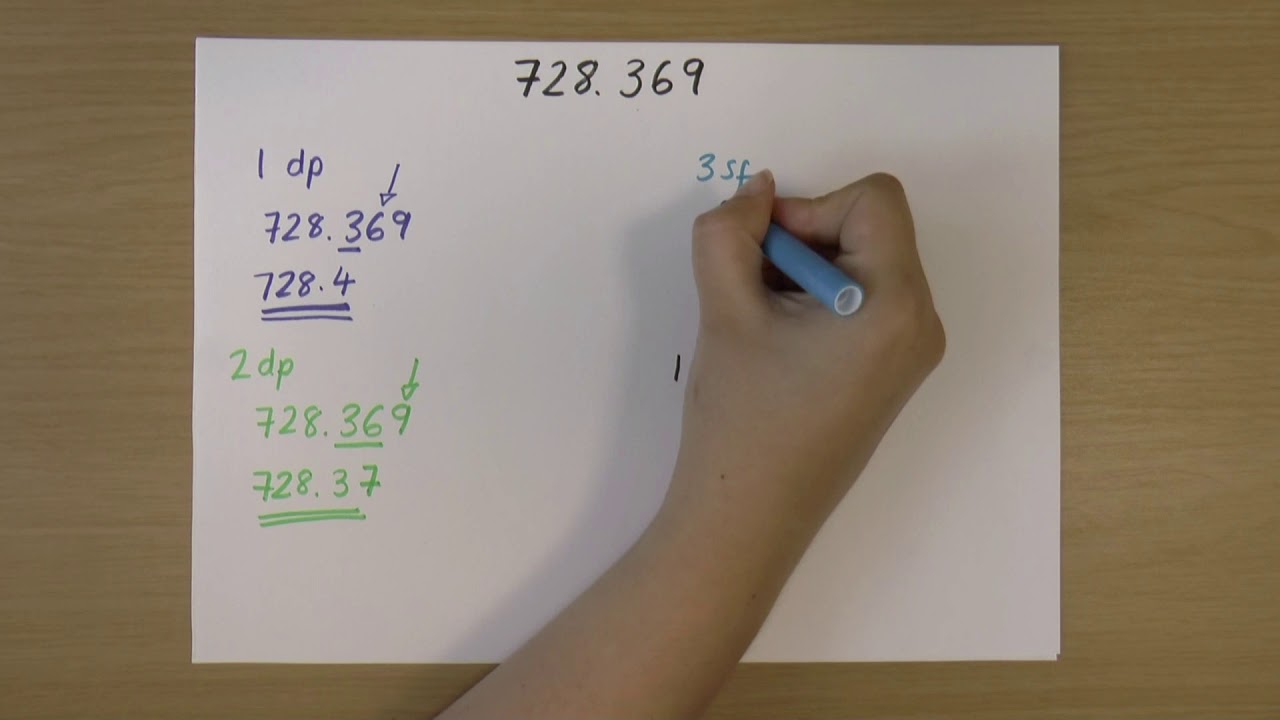 728.369
1 dp
728.369
728.4
2 dp
728.369
728.37
3 sf
1